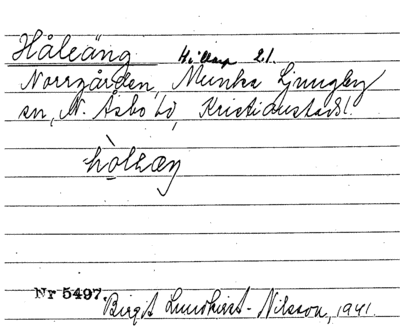 Håleäng Hillarp 21.
Norrgården, Munka Ljungby
sn, N. Åsbo hd, Kristianstads l.
Nr 5497. Birgit Lundkvist-Nilsson, 1941.